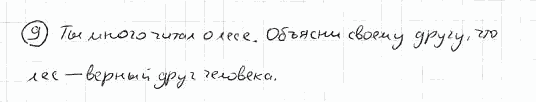 9 Ты много читал о лесе. Объясни своему другу, что
лес — верный друг человека.